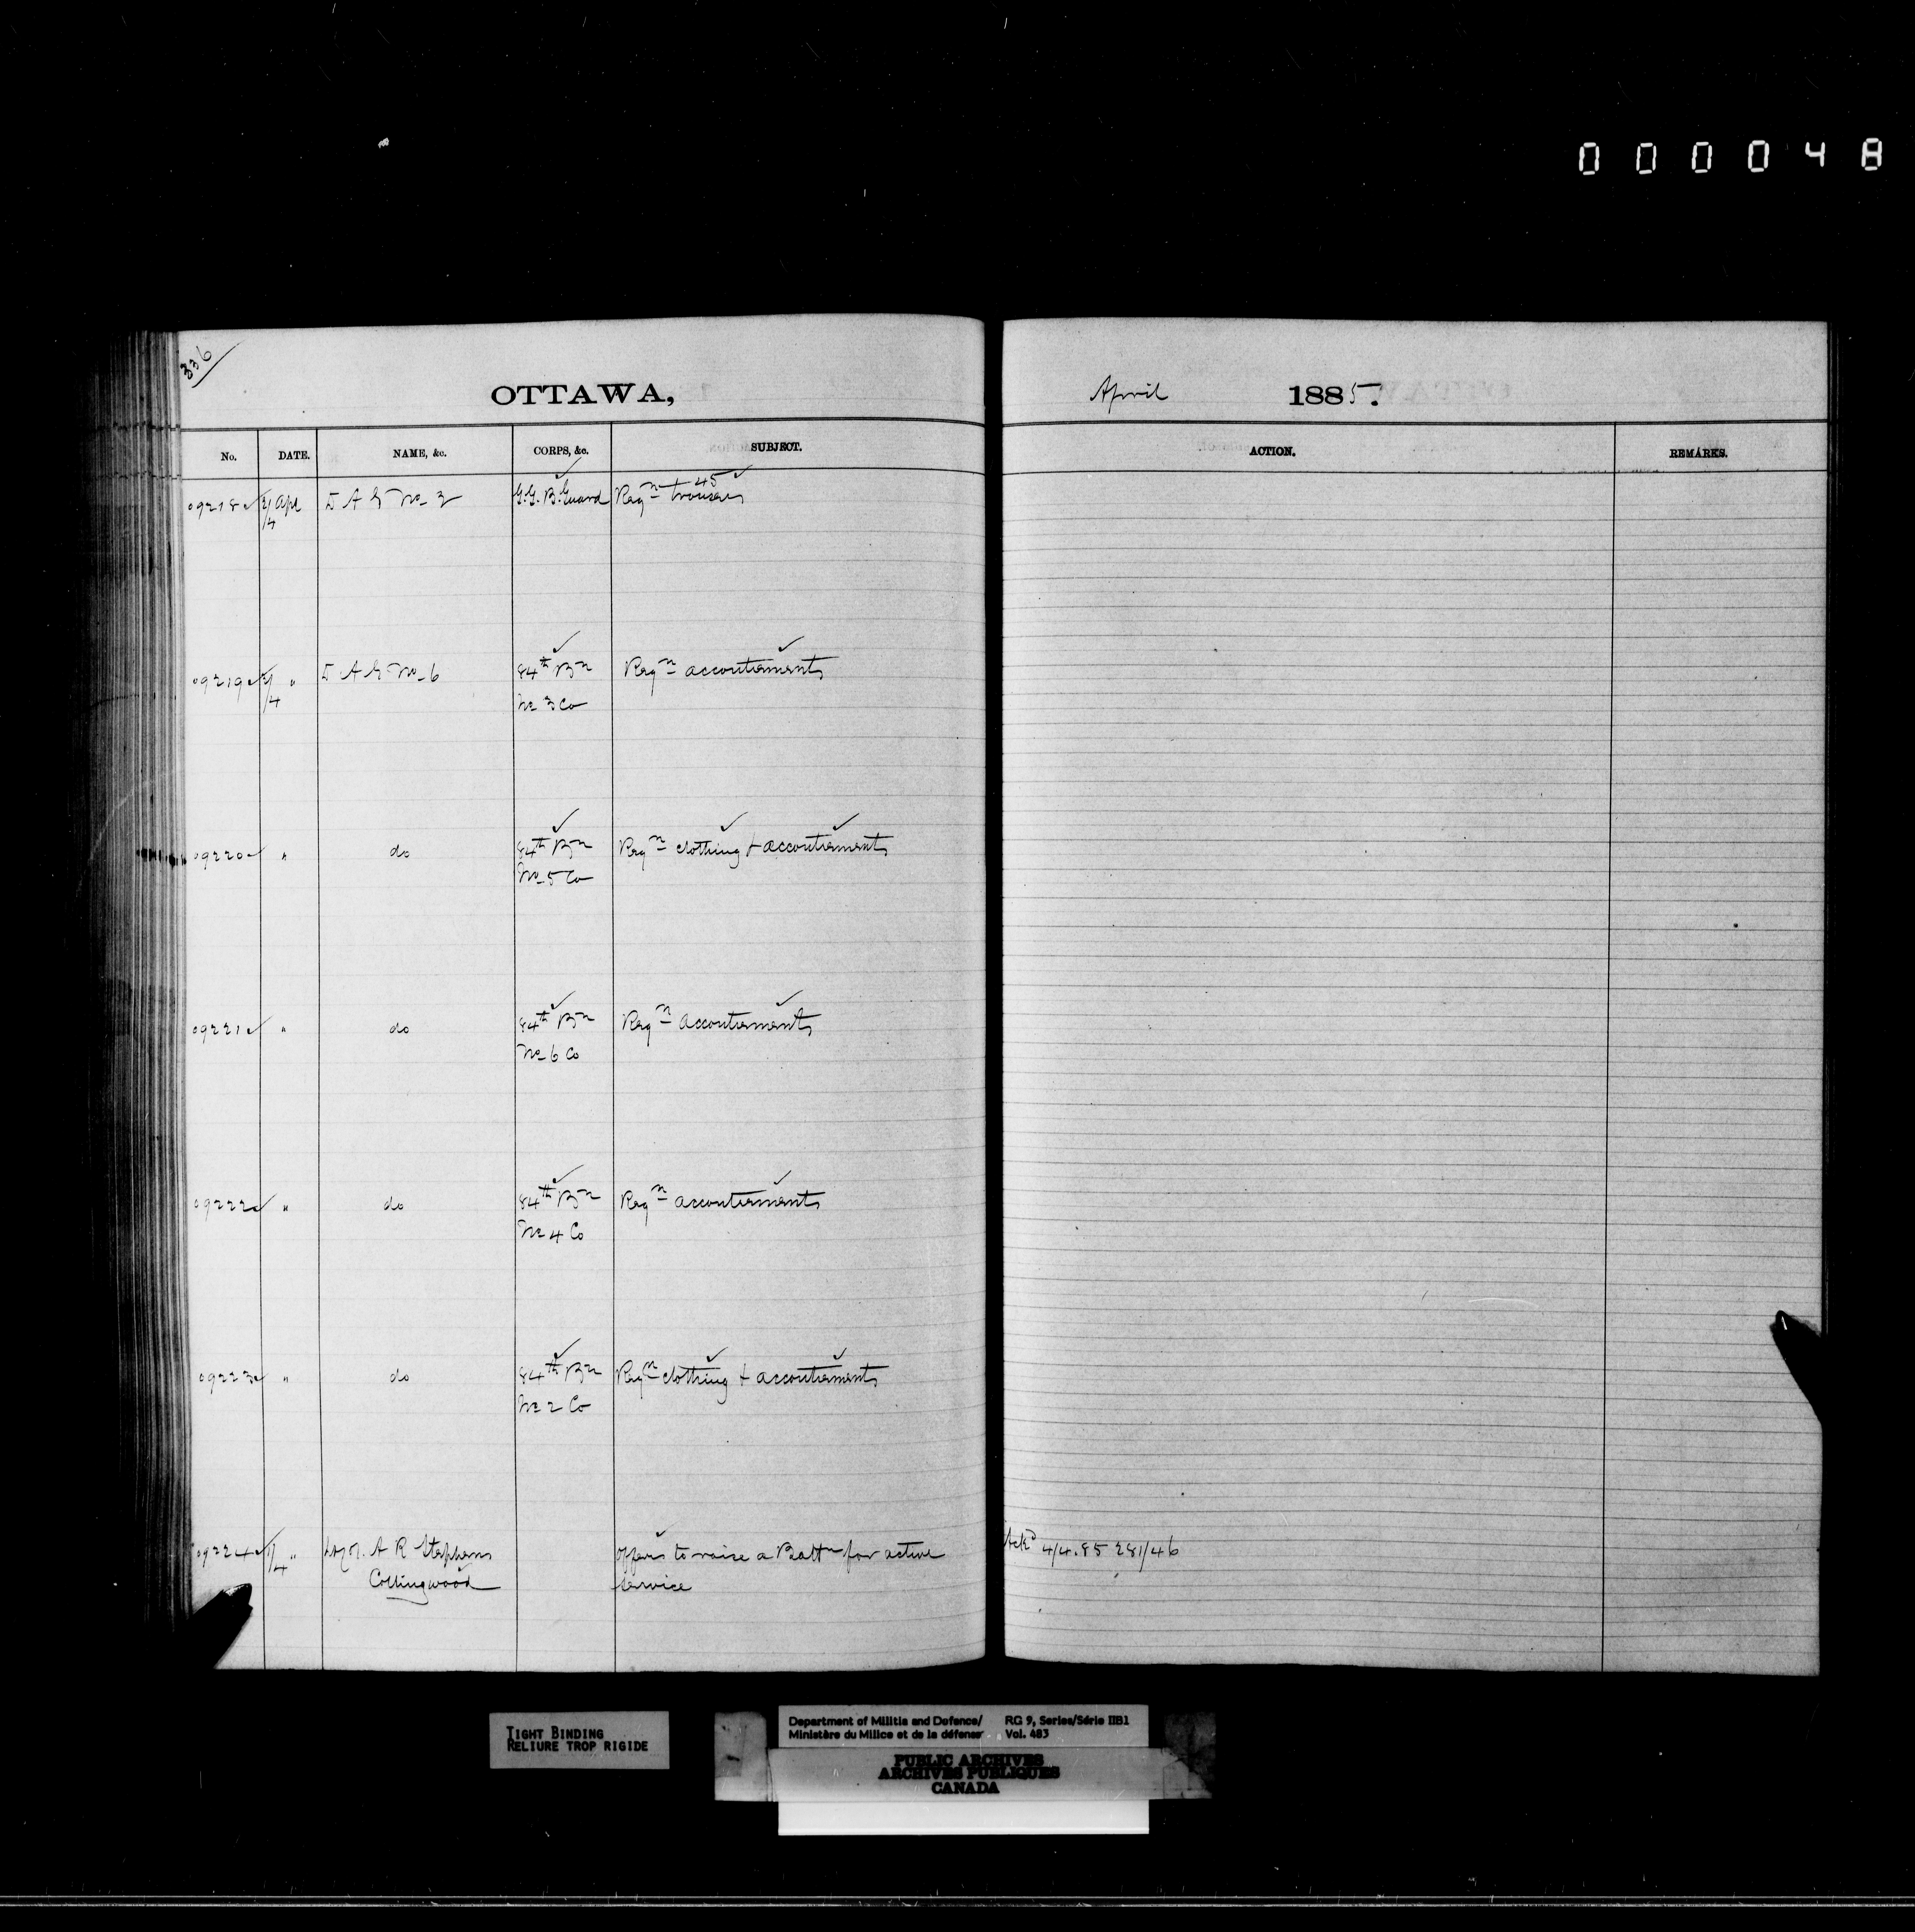 000048
336
OTTAWA, April 1885.
No. DATE. NAME, &c. CORPS, &c. SUBJECT. ACTION. REMARKS.
09218 2/4 Apl D A G No 3 G.G.B. Guard Reqn 45 trousers
09219 2/4 " D A G No 6 84th Bn Reqn accoutrements
No 3 Co
09220 " do 84th Bn Reqn clothing + accoutrements
No 5 Co
09221 " do 84th Bn Reqn accoutrements
No 6 Co
09222 " do 84th Bn Reqn accoutrements
No 4 Co
09223 " do 84th Bn Reqn clothing + accoutrements
No 2 Co
09224 1/4 " A R Stephens offers to raise a Battn for active Ackd 4/4.85 281/46
Collingwood service
TIGHT BINDING
RELIURE TROP RIGIDE
Department of Militia and Defence/ RG 9, Series/Série IIB1
Ministère du Milice et de la défense Vol. 483
PUBLIC ARCHIVES
ARCHIVES PUBLIQUES
CANADA